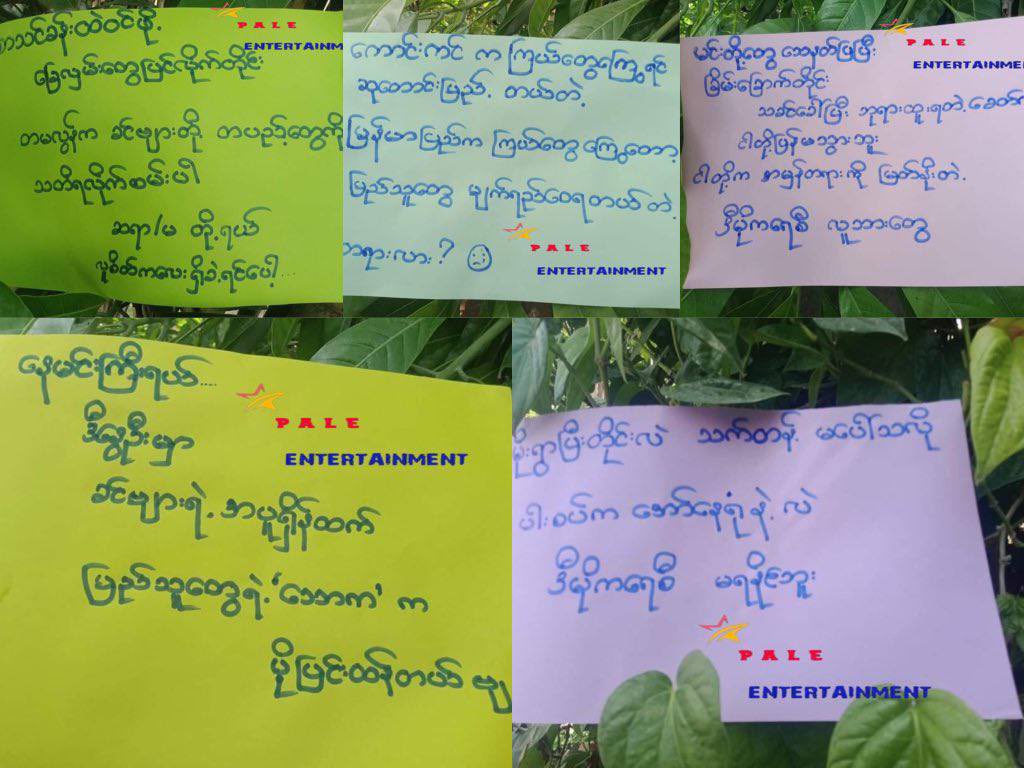 စာသင်ခန်းထဲဝင်ဖို့
ခြေလှမ်းတွေပြင်လိုက်တိုင်း
တမလွန်က ခင်ဗျားတို့ တပည့်တွေကို
သတိရလိုက်စမ်းပါ
ဆရာ/မ တို့ရယ်
လူစိတ်ကလေး ရှိခဲ့ရင်ပေါ့...
PALE
ENTERTAINM
ကောင်းကင် က ကြယ်တွေကြွေရင်
ဆုတောင်းပြည့် တယ်တဲ့
မြန်မာပြည်က ကြယ်တွေ ကြွေတော့
ပြည်သူတွေ မျက်ရည်ဝေရတယ် တဲ့
တရားလား? ☹
PALE
ENTERTAINMENT
မင်းတို့တွေ သေနတ်ပြပြီး
ခြိမ်းခြောက်တိုင်း
သခင်ခေါ်ပြီး ဘုရားထူးရတဲ့ခေတ်က
ငါတို့ပြန်မသွားဘူး
ငါတို့က အမှန်တရားကို မြတ်နိုးတဲ့
ဒီမိုကရေစီ လူသားတွေ
PALE
ENTERTAINMEN
နေမင်းကြီးရယ်....
ဒီနွေဦးမှာ
ခင်ဗျားရဲ့ အပူရှိန်ထက်
ပြည်သူတွေရဲ့ 'ဒေါသ' က
ပိုပြင်းထန်တယ် ဗျ
PALE
ENTERTAINMENT
မိုးရွာပြီးတိုင်းလဲ သက်တန့် မပေါ်သလို
ပါးစပ်က အော်နေရုံနဲ့ လဲ
ဒီမိုကရေစီ မရနိုင်ဘူး
PALE
ENTERTAINMENT